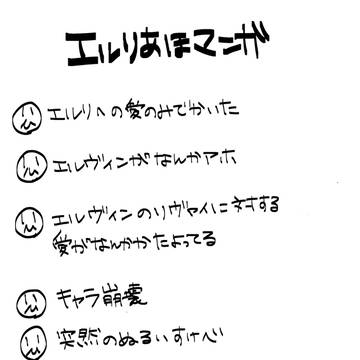 エルリあほマンガ
エルリへの愛のみでかいた
エルヴィンがなんかアホ
エルヴィンのリヴァイに対する
愛がなんかかたよってる
キャラ崩壊
突然のぬるいすけべ